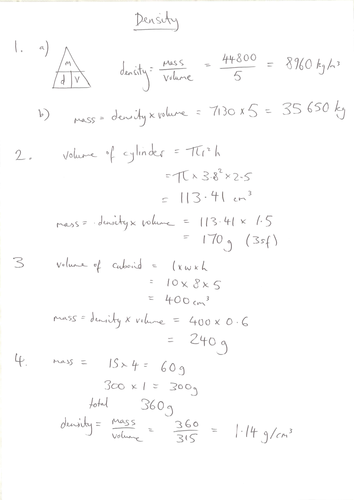 Density
1. a) m d v density = mass/volume = 44800/5 = 8960 kg/m³
b) mass = density x volume = 7130 x 5 = 35650 kg
2. volume of cylinder = πr²h
= π x 3.8² x 2.5
= 113.41 cm³
mass = density x volume = 113.41 x 1.5
= 170g (3sf)
3 volume of cuboid = l x w x h
= 10 x 8 x 5
= 400 cm³
mass = density x volume = 400 x 0.6
= 240g
4. mass = 15 x 4 = 60g
300 x 1 = 300g
total 360g
density = mass/volume = 360/315 = 1.14 g/cm³